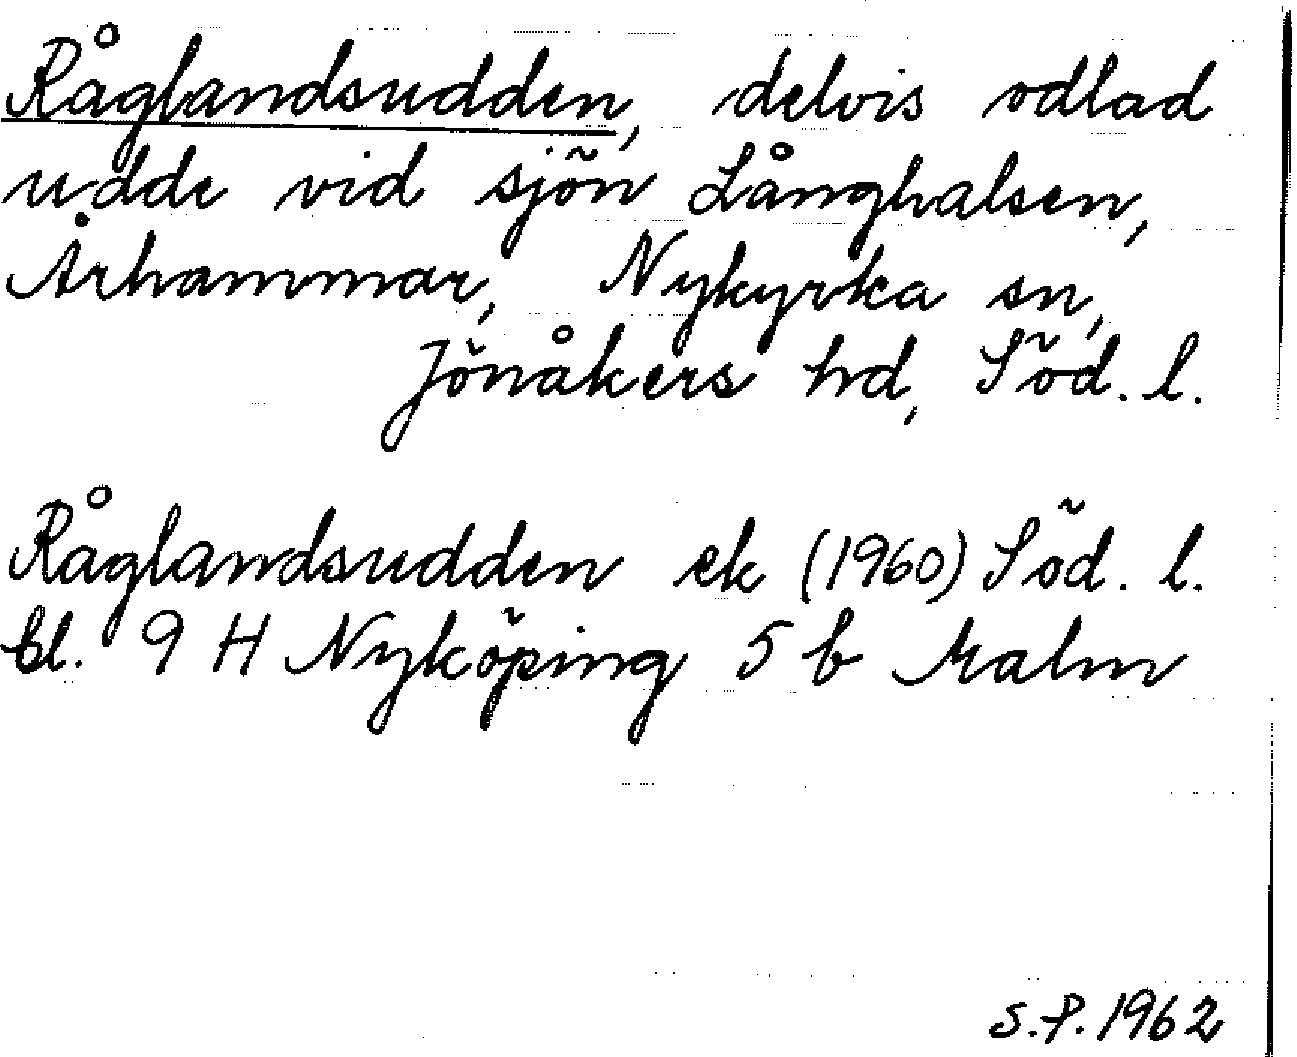 Råglandsudden, delvis odlad
udde vid sjön Långhalsen,
Århammar, Nykyrka sn,
Jönåkers hd, Söd. l.
Råglandsudden ek (1960) Söd. l.
bl. 9 H Nyköping 5 b Malm
S.P. 1962